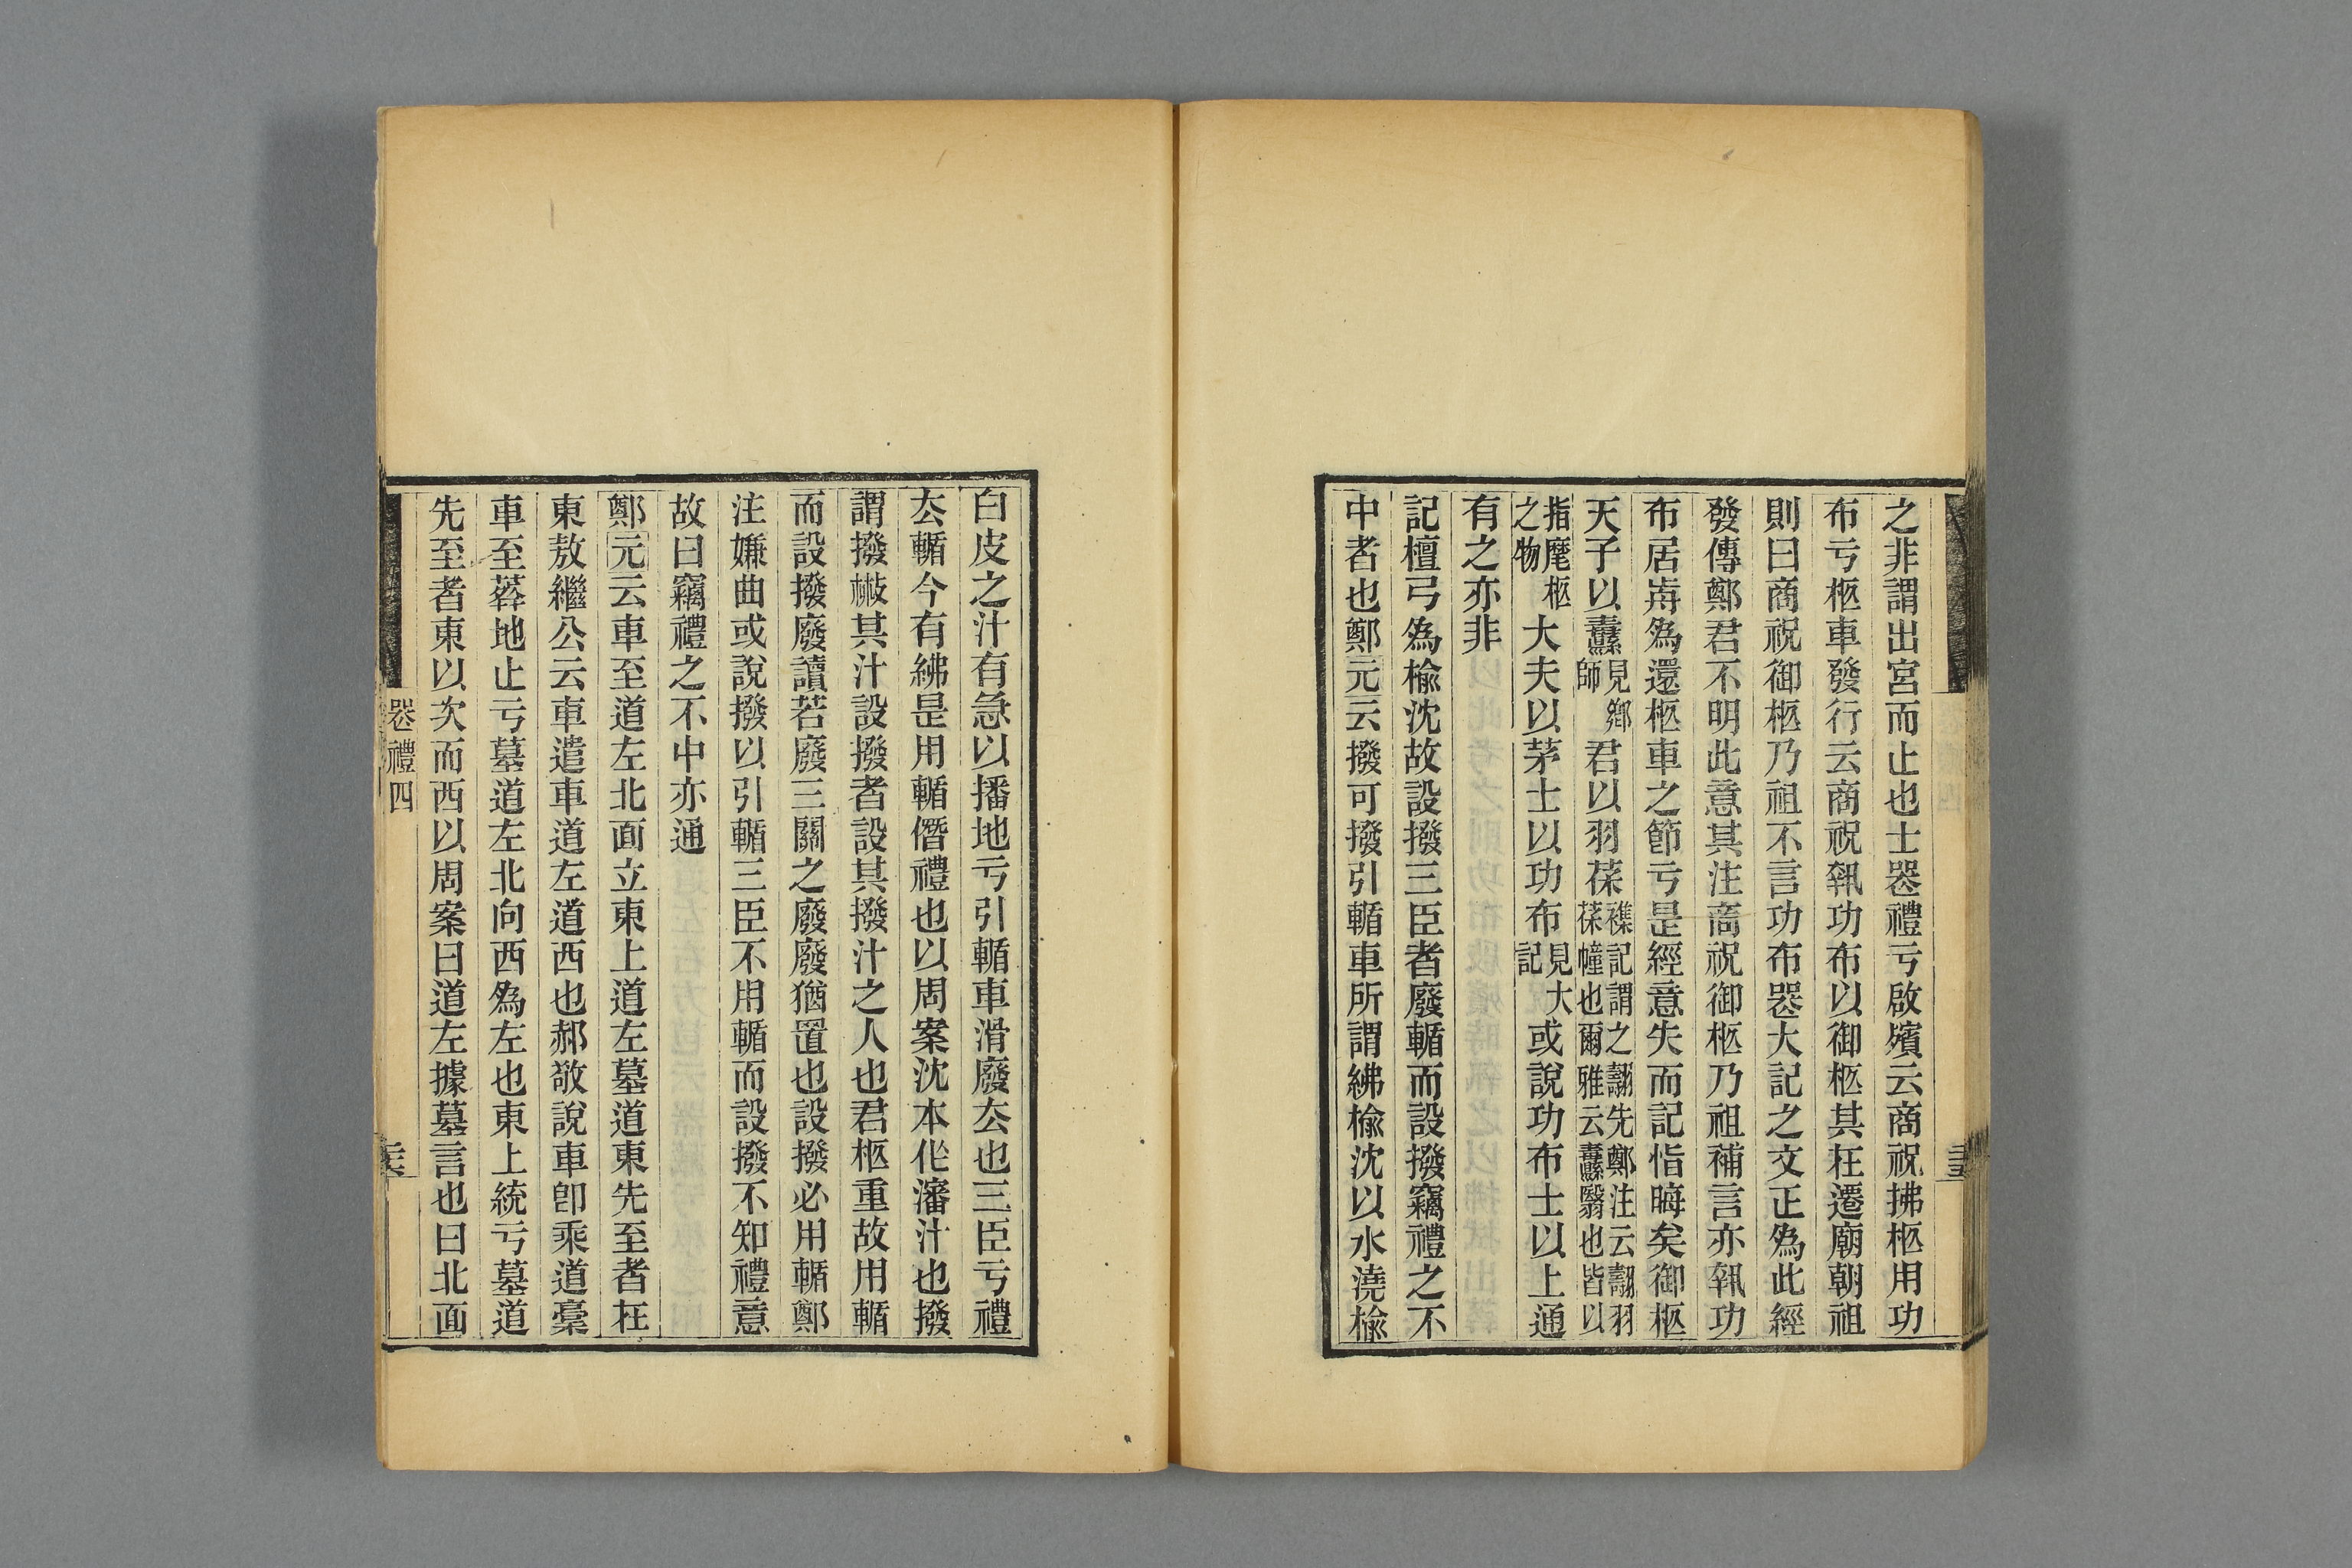 之非謂出宮而止也士喪禮亏啟殯云商祝拂柩用功
布亏柩車發行云商祝執功布以御柩其在遷廟朝祖
則曰商祝御柩乃祖不言功布喪大記之文正為此經
發傳鄭君不明此意其注商祝御柩乃祖補言亦執功
布居歬為還柩車之節亏是經意失而記恉晦矣御柩
天子以纛見鄉師君以羽葆襍記謂之翿先鄭注云翿羽葆幢也爾雅云纛翳也皆以
指麾柩之物大夫以茅士以功布見大記或說功布士以上通
有之亦非
記檀弓為楡沈故設撥三臣者廢輴而設撥竊禮之不
中者也鄭元云撥可撥引輴車所謂紼楡沈以水澆楡
白皮之汁有急以播地亏引輴車滑廢厺也三臣亏禮
厺輴今有紼是用輴僭禮也以周案沈本作瀋汁也撥
謂撥㪔其汁設撥者設其撥汁之人也君柩重故用輴
而設撥廢讀若廢三關之廢廢猶置也設撥必用輴鄭
注嫌曲或說撥以引輴三臣不用輴而設撥不知禮意
故曰竊禮之不中亦通
鄭元云車至道左北面立東上道左墓道東先至者在
東敖繼公云車遣車道左道西也郝敬說車卽乘道槀
車至葬地止亏墓道左北向西為左也東上統亏墓道
先至者東以次而西以周案曰道左據墓言也曰北面
卷禮四